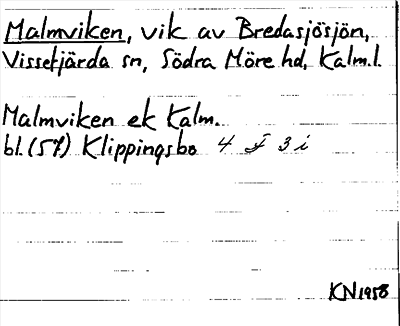 Malmviken, vik av Bredasjösjön,
Vissefjärda sn, Södra Möre hd, Kalm.l.
Malmviken ek Kalm.
bl.(57) Klippingsbo 4 F 3 i
KN 1958